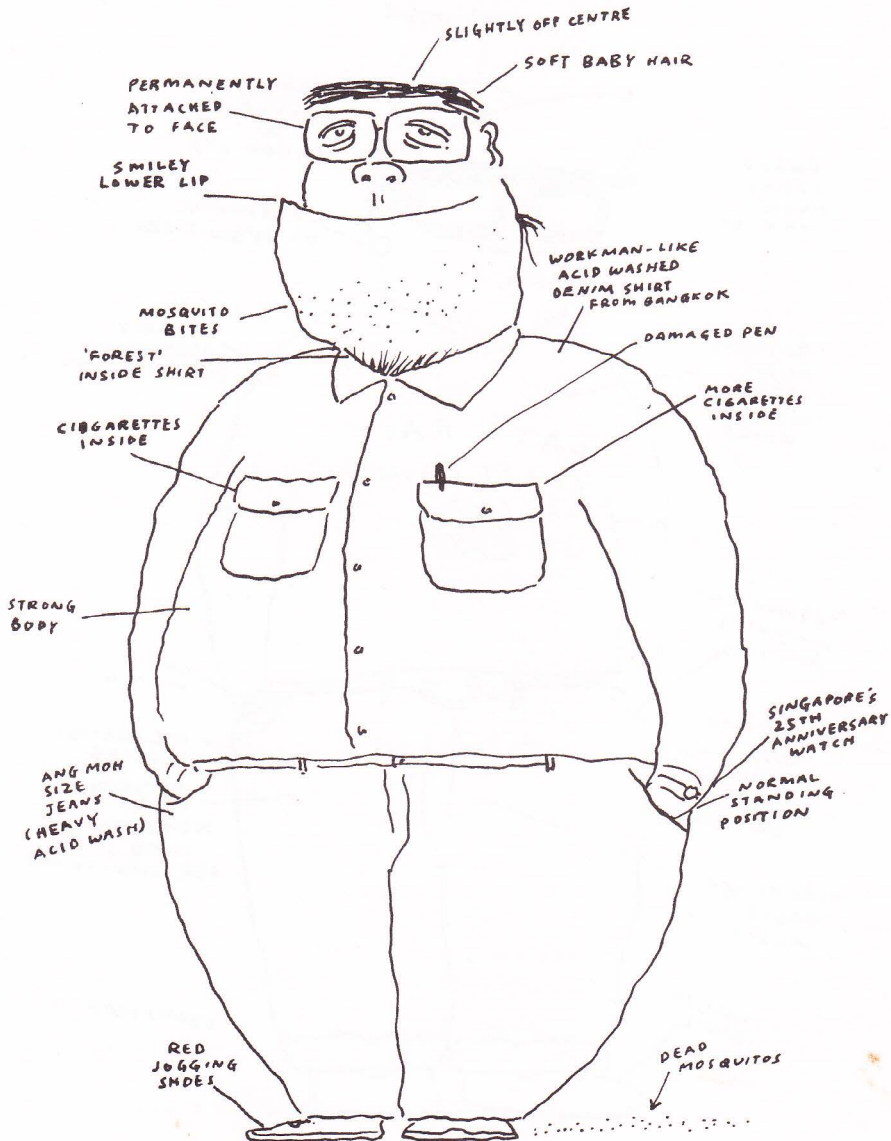 SLIGHTLY OFF CENTRE
SOFT BABY HAIR
PERMANENTLY
ATTACHED
TO FACE
SMILEY
LOWER LIP
WORKMAN-LIKE
ACID WASHED
DENIM SHIRT
FROM BANGKOK
MOSQUITO
BITES
DAMAGED PEN
'FOREST'
INSIDE SHIRT
MORE
CIGARETTES
INSIDE
CIGARETTES
INSIDE
STRONG
BODY
SINGAPORE'S
25TH
ANNIVERSARY
WATCH
ANG MOH
SIZE
JEANS
(HEAVY
ACID WASH)
NORMAL
STANDING
POSITION
RED
JOGGING
SHOES
DEAD
MOSQUITOS